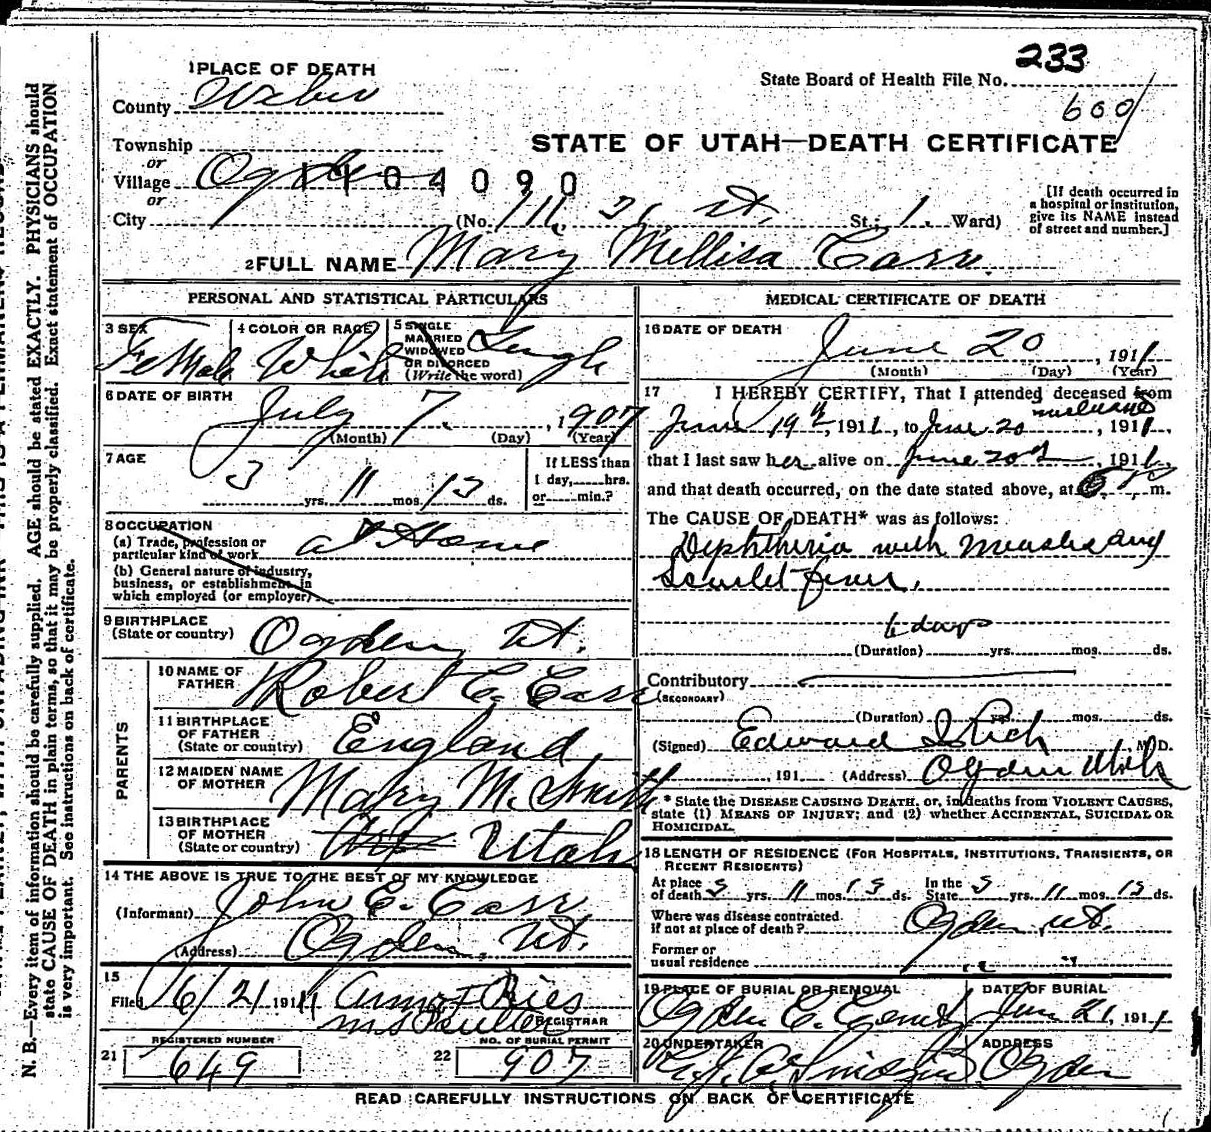 233
1 PLACE OF DEATH
State Board of Health File No.
County Weber
600
STATE OF UTAH—DEATH CERTIFICATE
Township
or
Village
or
City Ogden
1104090
(No. 21 St. St.; 1. Ward)
[If death occurred in
a hospital or institution,
give its NAME instead
of street and number.]
2 FULL NAME Mary Mellisa Carr
PERSONAL AND STATISTICAL PARTICULARS
3 SEX Female
4 COLOR OR RACE White
5 SINGLE
MARRIED
WIDOWED
OR DIVORCED
(Write the word)
6 DATE OF BIRTH July 7. , 1907
(Month) (Day) (Year)
7 AGE 3 yrs. 11 mos. 13 ds.
If LESS than
1 day, hrs.
or min.?
8 OCCUPATION
(a) Trade, profession or
particular kind of work at Home
(b) General nature of industry,
business, or establishment in
which employed (or employer)
9 BIRTHPLACE
(State or country) Ogden Ut.
PARENTS
10 NAME OF
FATHER Robert E. Carr
11 BIRTHPLACE
OF FATHER
(State or country) England
12 MAIDEN NAME
OF MOTHER Mary M. Smith
13 BIRTHPLACE
OF MOTHER
(State or country) Utah
14 THE ABOVE IS TRUE TO THE BEST OF MY KNOWLEDGE
(Informant) John E. Carr
(Address) Ogden, Ut.
15
Filed 6/21 1911
REGISTRAR
REGISTERED NUMBER
21 649
NO. OF BURIAL PERMIT
22 907
MEDICAL CERTIFICATE OF DEATH
16 DATE OF DEATH
June 20 , 1911
(Month) (Day) (Year)
17 I HEREBY CERTIFY, That I attended deceased from
June 19th, 1911, to June 20 , 1911,
that I last saw her alive on June 20th , 1911,
and that death occurred, on the date stated above, at m.
The CAUSE OF DEATH* was as follows:
Dyphtheria with Measles and
Scarlet fever.
6 days
(Duration) yrs. mos. ds.
Contributory
(SECONDARY)
(Duration) yrs. mos. ds.
(Signed) Edward I Rich , M. D.
, 191 (Address) Ogden Utah
* State the DISEASE CAUSING DEATH, or, in deaths from VIOLENT CAUSES,
state (1) MEANS OF INJURY; and (2) whether ACCIDENTAL, SUICIDAL OR
HOMICIDAL.
18 LENGTH OF RESIDENCE (FOR HOSPITALS, INSTITUTIONS, TRANSIENTS, OR
RECENT RESIDENTS)
At place
of death 3 yrs. 11 mos. 13 ds.
In the
State 3 yrs. 11 mos. 13 ds.
Where was disease contracted
if not at place of death? Ogden Ut.
Former or
usual residence " "
19 PLACE OF BURIAL OR REMOVAL
Ogden C. Cemt
DATE OF BURIAL
June 21, 1911
20 UNDERTAKER
ADDRESS
Ogden
READ CAREFULLY INSTRUCTIONS ON BACK OF CERTIFICATE
N. B.—Every item of information should be carefully supplied. AGE should be stated EXACTLY. PHYSICIANS should
state CAUSE OF DEATH in plain terms, so that it may be properly classified. Exact statement of OCCUPATION
is very important. See instructions on back of certificate.